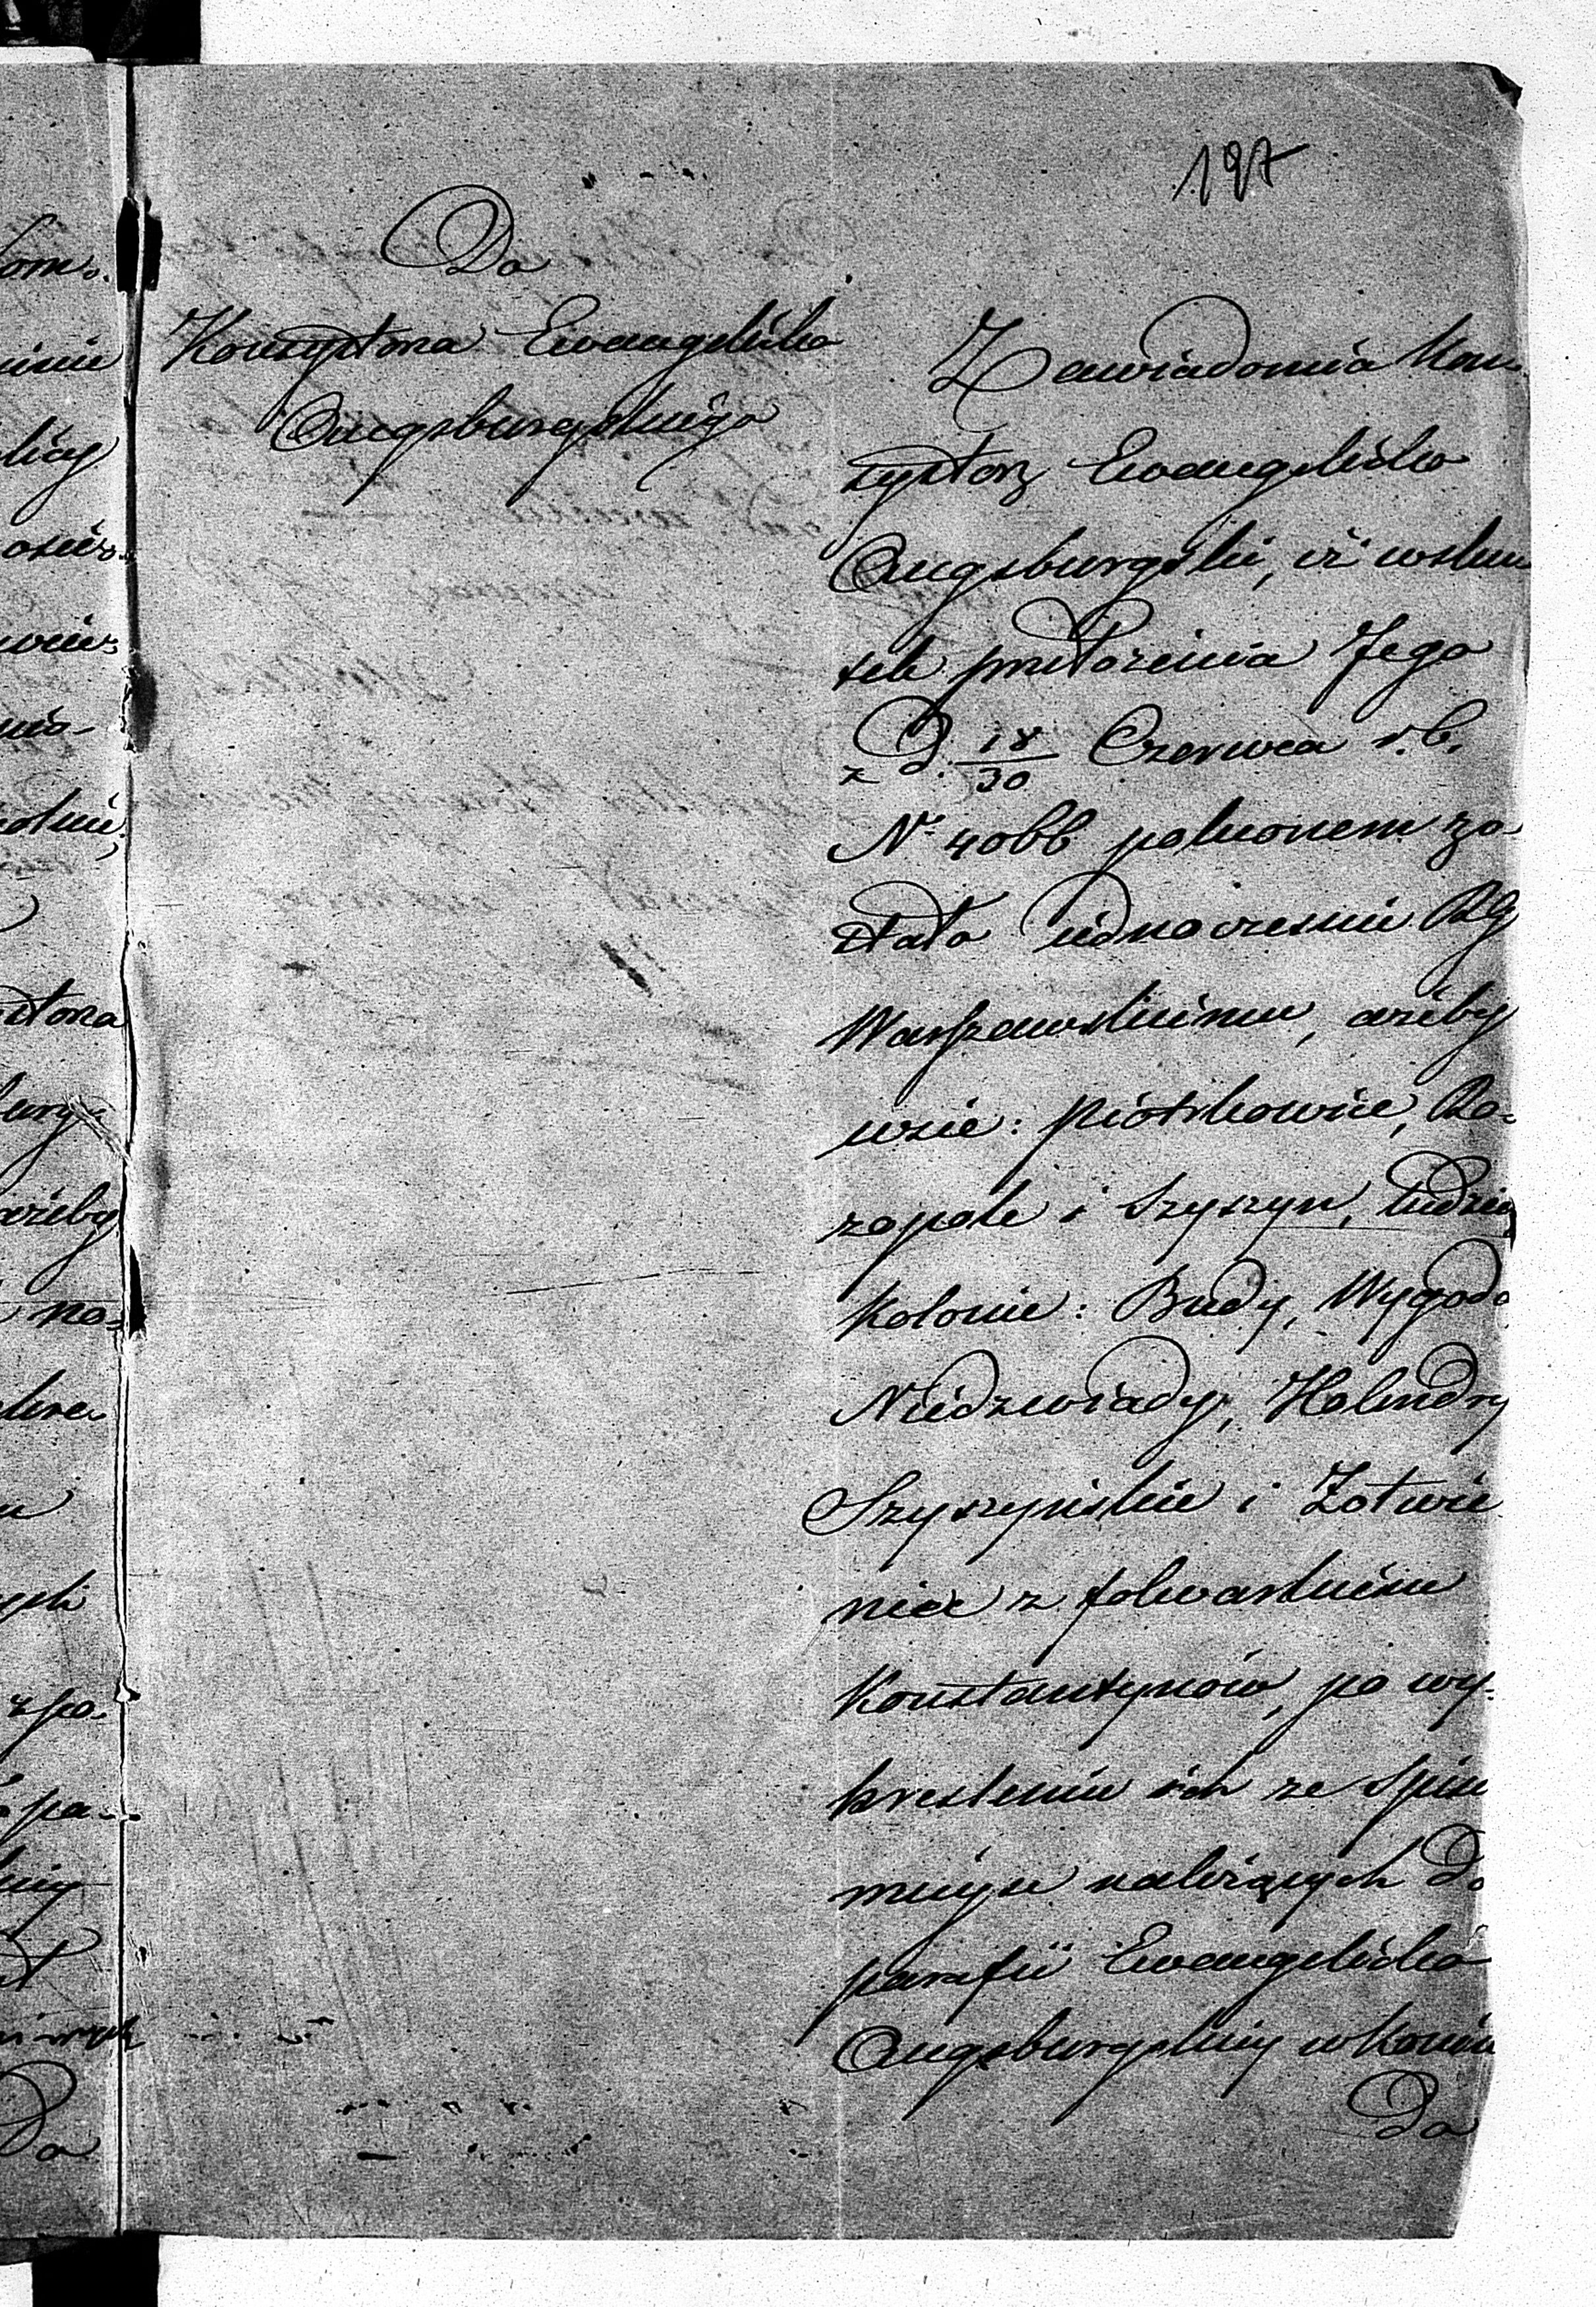 197
Do
Konsystorza Ewangelicko
Augsburgskiego
Zawiadomia Kon-
systorz Ewangelicko
Augsburgski, iż wsku
tek przełożenia Jego
z D. 18/30 Czerwca r.b.
Nr 4066 poleconem zo
stało jednocześnie RG
Warszawskiemu, ażeby
wsie: Piotrkowice, Ro-
zopole i Szyszyn, tudzież
Kolonie: Budy, Wygoda
Niedzwiady, Holendry
Szyszyńskie i Zotwie
niec z folwarkiem
Konstantynów, po wy-
kreśleniu ich ze spisu
miejsc należących do
parafii Ewangelicko
Augsburgskiej w Koninie
Do